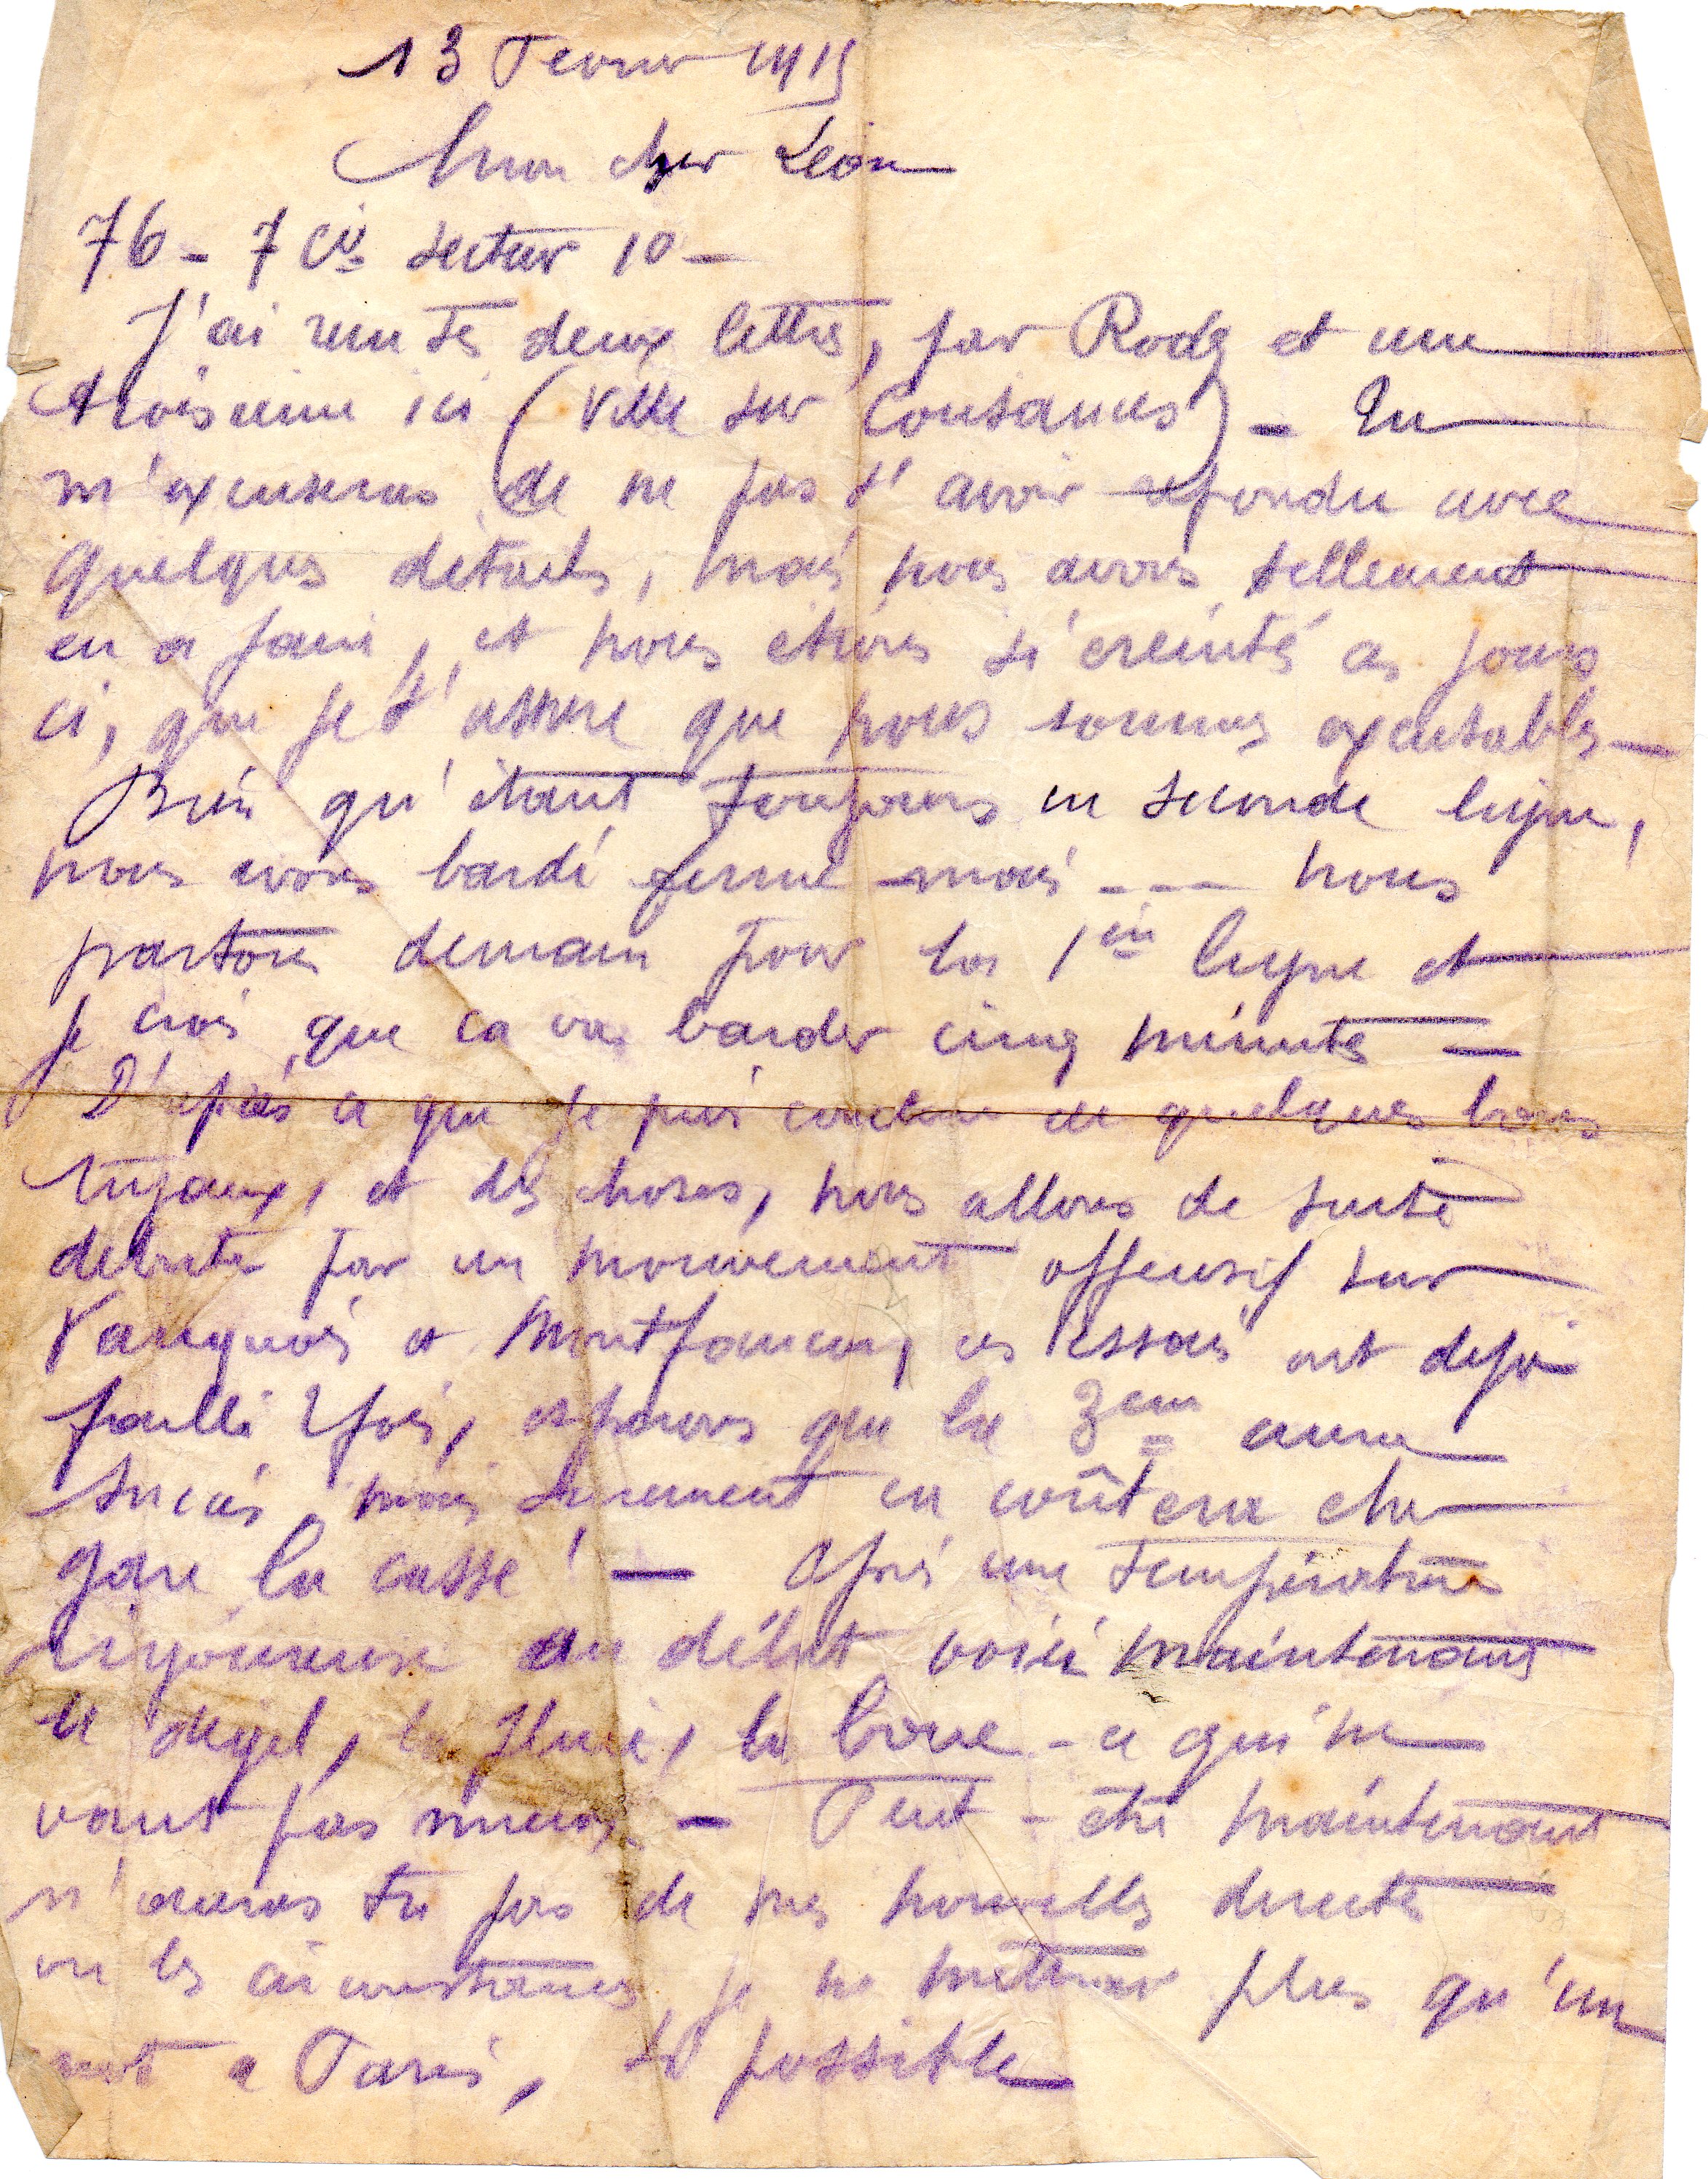 13 Fevrier 1915
Mon cher Léon
76 - 7 Cie secteur 10 -
J'ai recu tes deux lettres, par Rodg et une
troisieme ici (Ville sur Cousances) - Tu
m'excuseras de ne pas t'avoir repondu avec
quelques details, mais nous avons tellement
en a faire, et nous etions si éreintés ces jours
ci, que je t'assure que nous sommes excusables -
Bien qu'étant toujours en seconde ligne,
nous avons bardé ferme mais --- nous
partons demain pour la 1ere ligne et
je crois que ca va barder cinq minutes -
D'après ce que je puis conclure de quelques bons
tuyaux, et des choses, nous allons de suite
debuter par un mouvement offensif sur
Vauquois et Montfaucon, ces essais ont deja
failli 2 fois, esperons que la 3eme aura
succès mais surement ca coûtera cher
gare la casse ! - Après une température
rigoureuse au début voici maintenant
le degel, la pluie, la boue - ce qui ne
vaut pas mieux - Peut-être maintenant
n'auras tu pas de mes nouvelles directes
vu les circonstances, je ne mettrai plus qu'un
mot a Paris, si possible